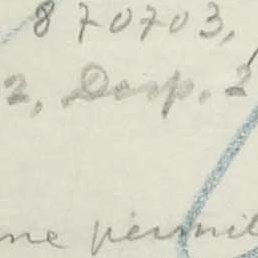 870703,
2, Desp. 2
me permit